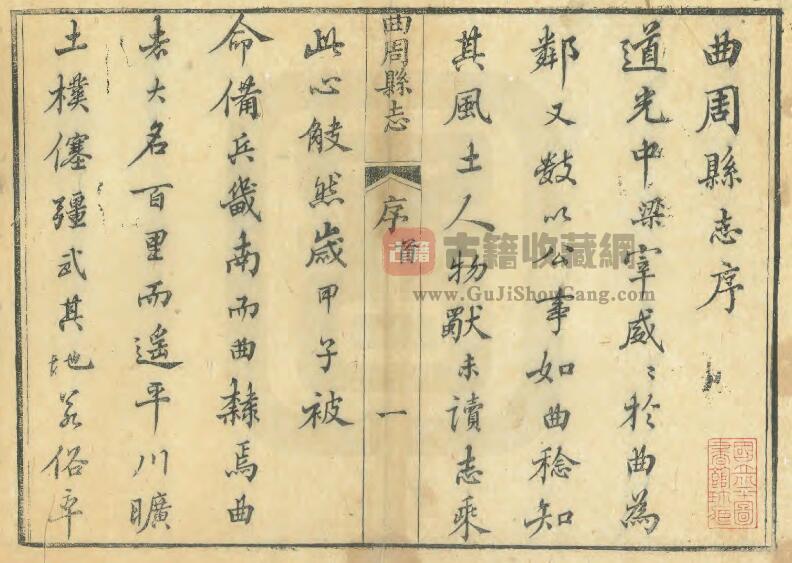 曲周縣志序
道光中梁宰威〻於曲為
鄰又數以公事如曲稔知
其風土人物獸未讀志乘
曲周縣志
序首
一
此心觖然歲甲子被
命備兵畿南而曲隸焉曲
去大名百里而遙平川曠
土樸僿彊武其地然俗率
古籍
古籍收藏網
www.GuJiShouCang.com